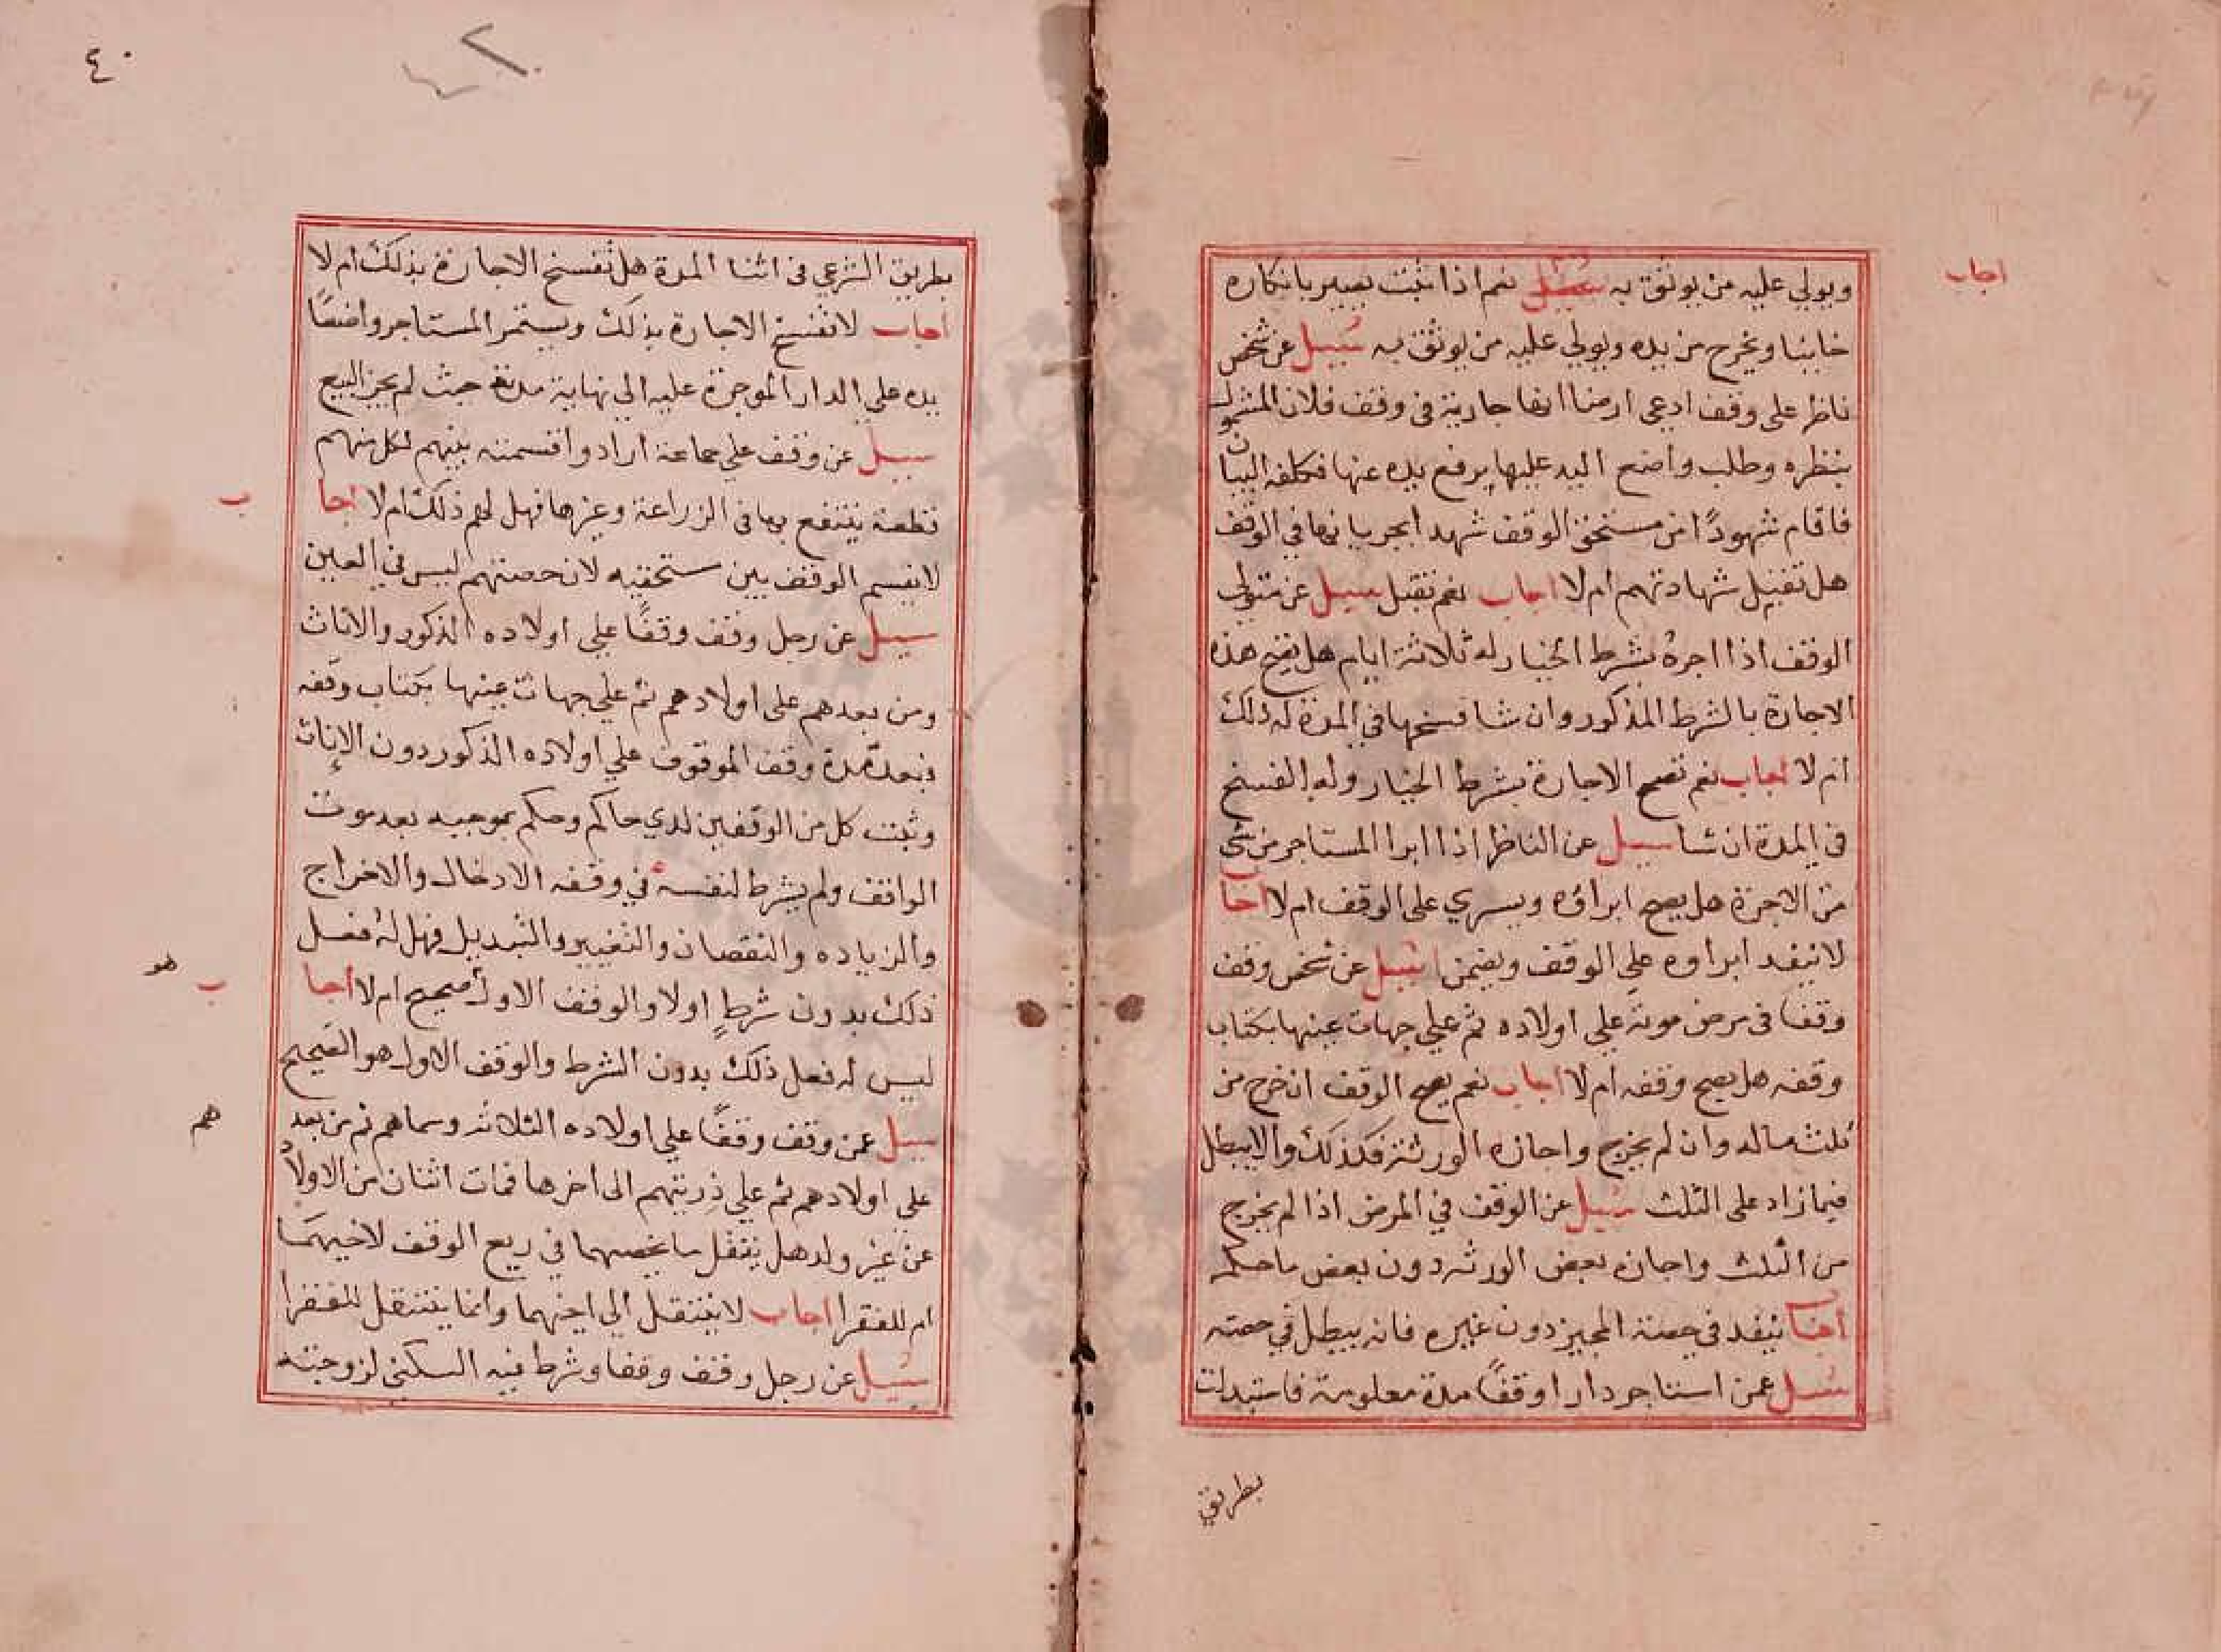 ويولي عليه من يوثق به سئل نعم اذا ثبت يصير بانكاره
اجاب
خاينا ويخرج من يده ويولي عليه من يوثق به سئيل عن شخص
ناظر على وقف ادعى ارضا انها جارية في وقف فلان المشمول
بنظره وطلب واضع اليد عليها برفع يده عنها فكلفه البيان
فاقام شهودًا من مستحقي الوقف شهدا بجريانها في الوقف
هل تقبل شهادتهم ام لا اجاب نعم تقبل سيل عن متولي
الوقف اذا اجره بشرط الخيار له ثلاثة ايام هل يصح هذه
الاجارة بالشرط المذكور وان شا فسخها في المدة له ذلك
ام لا اجاب نعم تصح الاجارة بشرط الخيار وله الفسخ
في المدة ان شا سيل عن الناظر اذا ابرا المستاجر من شي
من الاجرة هل يصح ابراؤه ويسري على الوقف ام لا اجاب
لا ينفد ابراوه علي الوقف ويضمن سئيل عن شخص وقف
وقفا في مرض موته علي اولاده ثم علي جهات عينها بكتاب
وقفه هل يصح وقفه ام لا اجاب نعم يصح الوقف ان خرج من
ثلث ماله وان لم يخرج واجازه الورثة فكذلك والا يبطل
فيما زاد على الثلث سئيل عن الوقف في المرض اذا لم يخرج
من الثلث واجازه بعض الورثه دون بعض ما حكمه
اجاب ينفد في حصة المجيز دون غيره فانه يبطل في حصته
سئيل عمن استاجر دارا وقفًا مدة معلومة فاستبدلت
بطريق
٤٠
بطريق الشرعي في اثنا المدة هل تفسخ الاجارة بذلك ام لا
اجاب لا تفسخ الاجارة بذلك ويستمر المستاجر واضعًا
يده علي الدار الموجرة عليه الي نهاية مدته حيث لم يجز البيع
سيل عن وقف علي جماعة ارادوا قسمته بينهم لكل منهم
قطعة ينتفع بها في الزراعة وغيرها فهل لهم ذلك ام لا اجا
ب
لا يقسم الوقف بين مستحقيه لان حصتهم ليس في العين
سيل عن رجل وقف وقفًا علي اولاده الذكور والاناث
ومن بعدهم على اولادهم ثم علي جهات عينها بكتاب وقفه
فبعد مدة وقف الموقوف علي اولاده الذكور دون الاناث
وثبت كل من الوقفين لدي حاكم وحكم بموجبه بعد موت
الواقف ولم يشرط لنفسه في وقفه الادخال والاخراج
والزياده والنقصان والتغيير والتبديل فهل له فعل
هو
ذلك بدون شرط اولا والوقف الاول صحيح ام لا اجا
ب
ليس له فعل ذلك بدون الشرط والوقف الاول هو الصحيح
سيل عمن وقف وقفًا علي اولاده الثلاثه وسماهم ثم من بعد
هم
علي اولادهم ثم علي ذريتهم الى اخرها فمات اثنان من الاولاد
عن غير ولد هل ينتقل ما يخصهما في ريع الوقف لاخيهما
ام للفقرا اجاب لا ينتقل الي اخيهما وانما ينتقل للفقرا
سئيل عن رجل وقف وقفا وشرط فيه السكني لزوجته